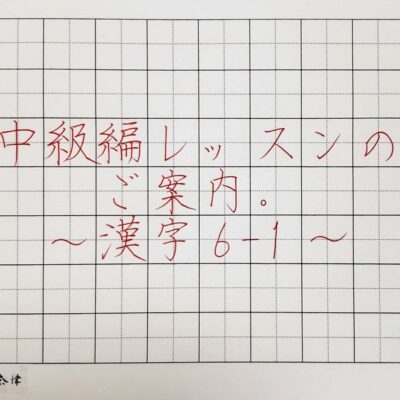 中級編レッスンの
ご案内。
～漢字6-1～